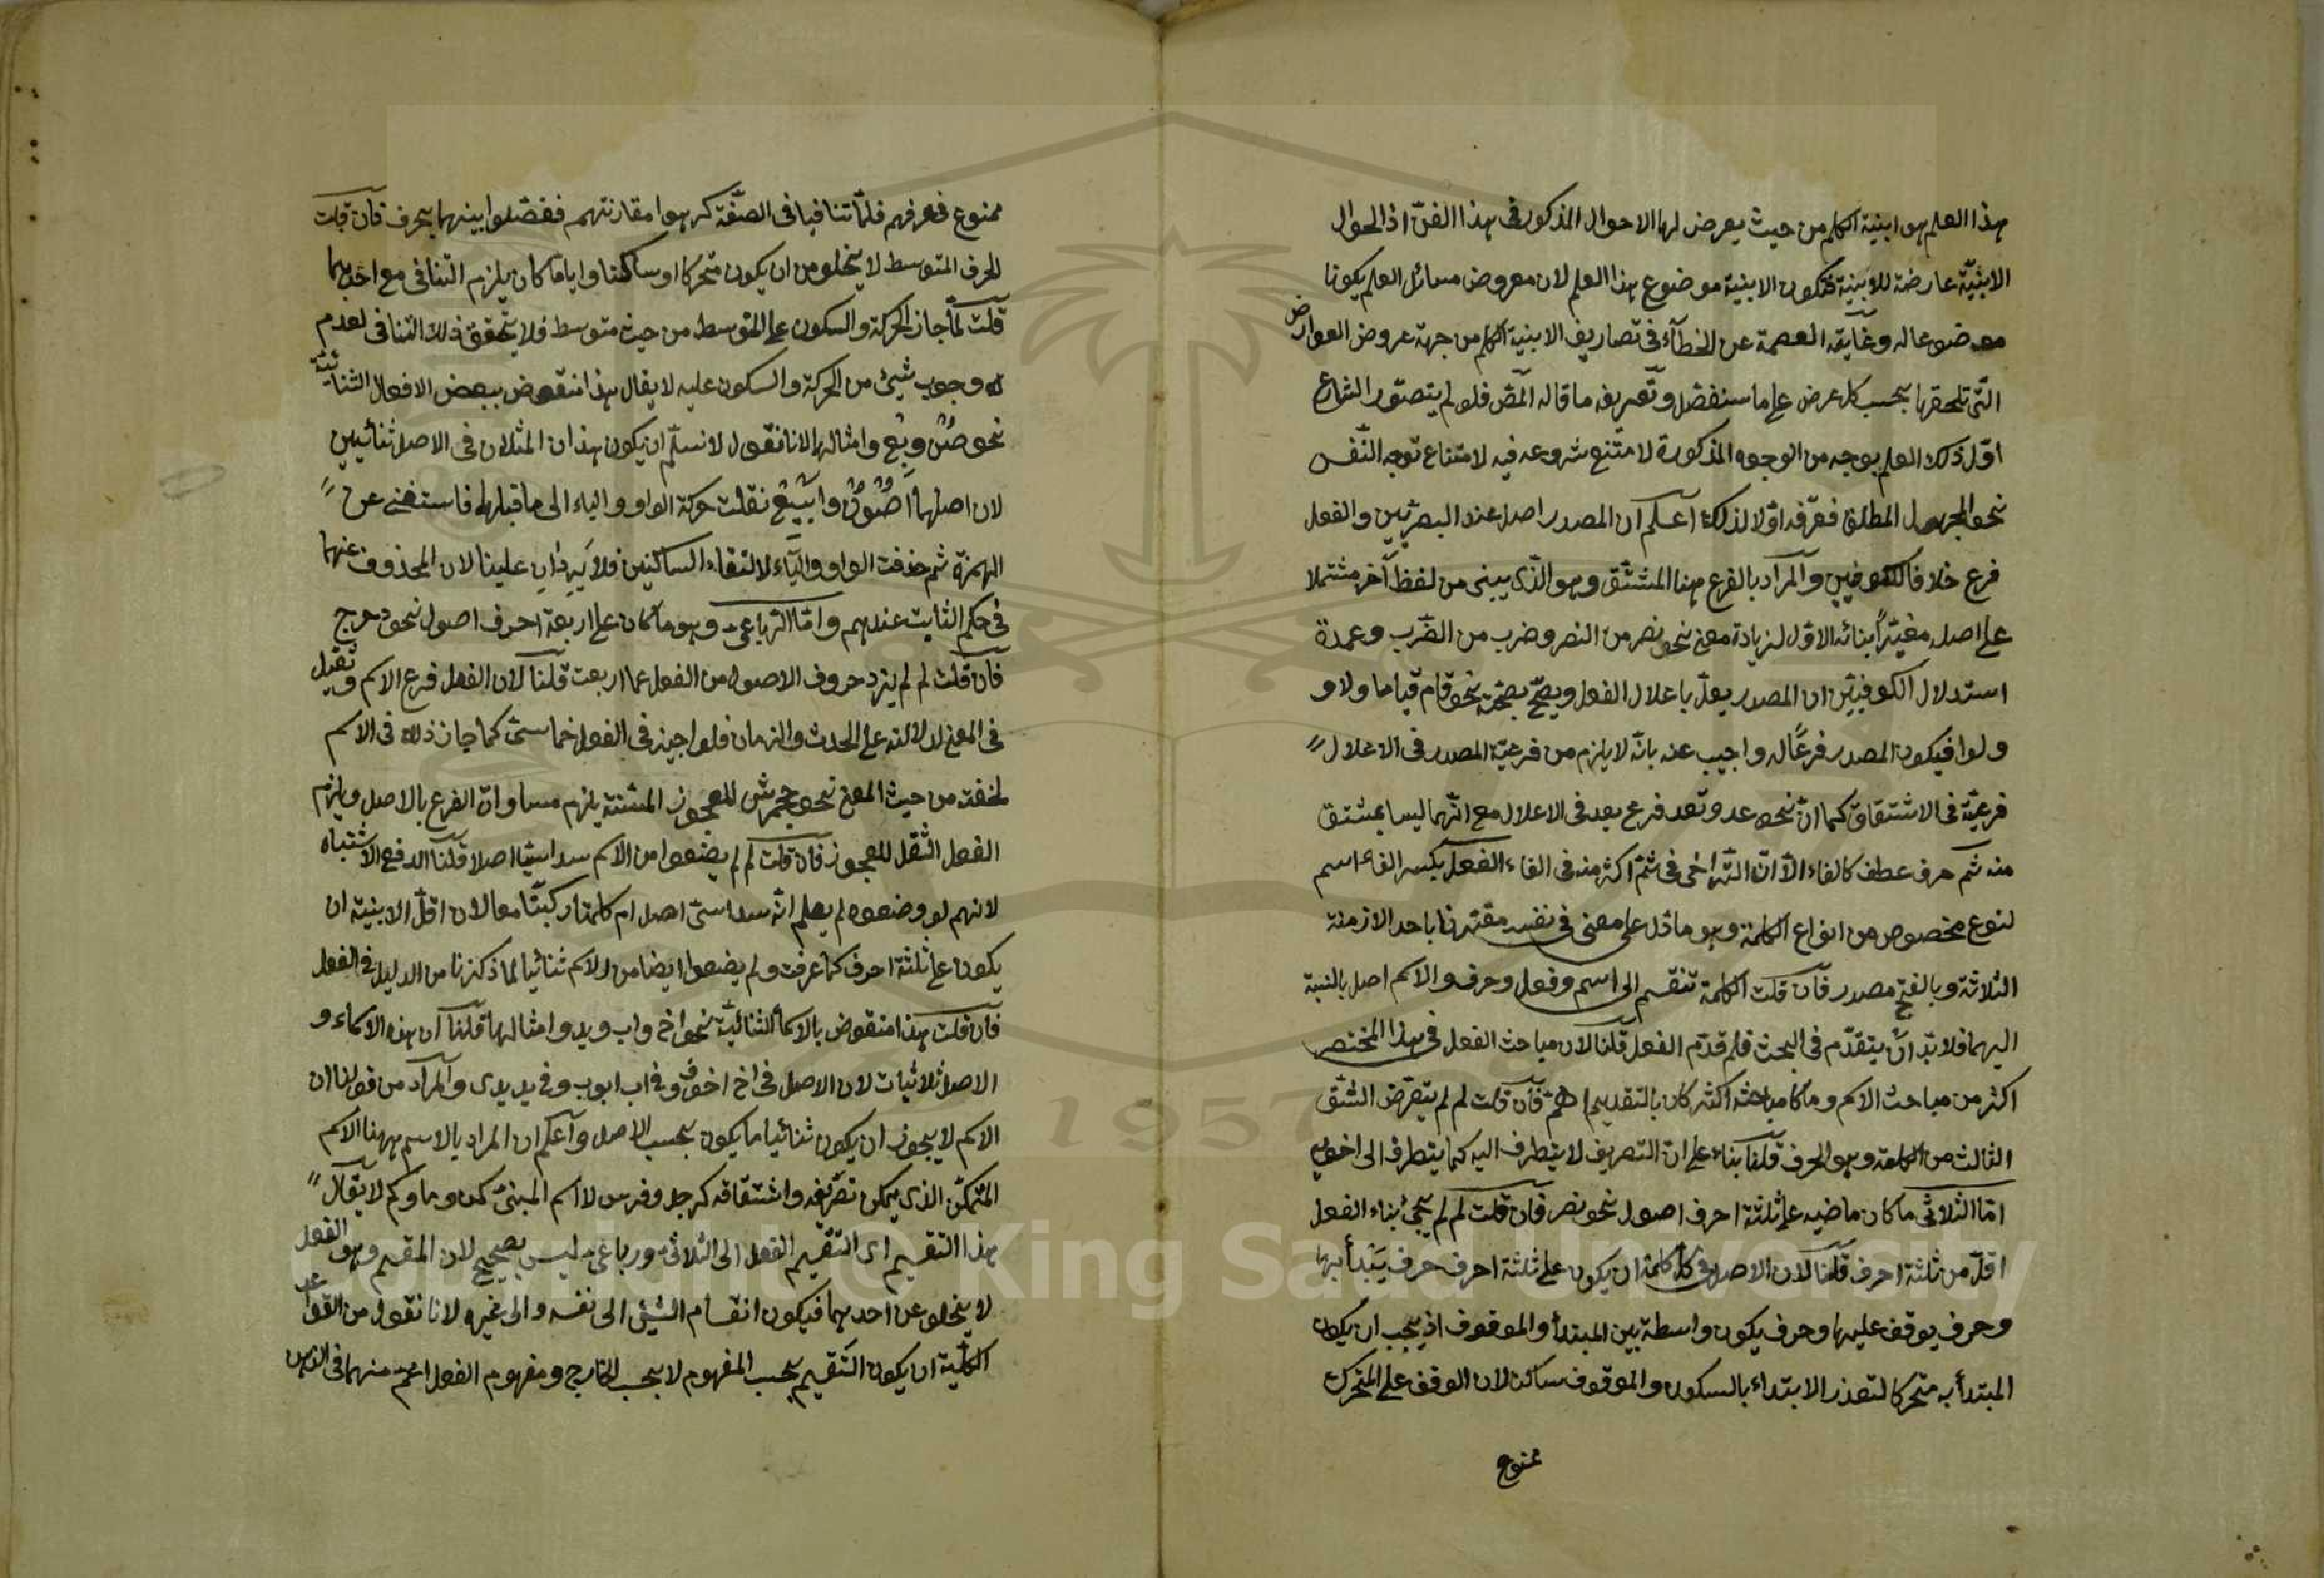 هذا العلم هو ابنية الكلم من حيث يعرض لها الاحوال المذكور فى هذا الفن اذ الحوال
الابنيّة عارضة للابنية فتكون الابنية موضوع هذا العلم لان معروض مسائل العلم يكونا
موضوعا له وغايته العصمة عن الخطآء فى تصاريف الابنية الكلم من جهة عروض العوارض
التّى تلحقها بحسب كل عرض على ما سنفصّل وتعريفه ما قاله المص فلو لم يتصوّر الشارع
اوّل ذلك العلم بوجه من الوجوه المذكورة لامتنع شروعه فيه لامتناع توجه النّفس
نحو المجهول المطلق فعرّفه اوّلا لذلك اعلم ان المصدر اصل عند البصريّين والفعل
فرع خلافا للكوفيين والمراد بالفرع ههنا المشتّق وهو الذّى يبنى من لفظ آخر مشتملا
على اصله مغيّرًا بنائه الاوّل لزيادة معنى نحو نصر من النصر وضرب من الضّرب وعمدة
استدلال الكوفيّين ان المصدر يعلّ باعلال الفعل ويصحّ بصحّته نحو قام قياما ولاو
ولوا فيكون المصدر فرعًا له واجيب عنه بانّه لا يلزم من فرعيّة المصدر فى الاعلال
فرعيّة فى الاشتقاق كما انّ نحو عد وتعد فرع يعد فى الاعلال مع انّهما ليسا بمشتق
منه ثم حرف عطف كالفاء الّا انّ التّراخى فى ثمّ اكثر منه فى الفاء الفعل بكسر الفاء اسم
لنوع مخصوص من انواع الكلمة وهو ما دلّ على معنى فى نفسه مقترنا باحد الازمنة
الثلاثة وبالفتح مصدر فان قلت الكلمة تنقسم الى اسم وفعل وحرف والاسم اصل بالنسبة
اليهما فلا بدّ انّ يتقدّم فى البحث فلم قدّم الفعل قلنا لان مباحث الفعل فى هذا المختصر
اكثر من مباحث الاسم وما كا مباحثه اكثر كان بالتقديم اهمّ فان قلت لم لم يتعرّض الشّق
الثالث من الكلمة وهو الحرف قلنا بناء على انّ التصريف لا يتطرف اليه كما يتطرف الى اخويه
امّا الثلاثى ما كان ماضيه على ثلثة احرف اصول نحو نصر فان قلت لم لم يجئ بناء الفعل
اقلّ من ثلثة احرف قلنا لان الاصل فى كل كلمة ان يكون على ثلثة احرف حرف يبتدأ بها
وحرف يوقف عليها وحرف يكون واسطة بين المبتدأ والموقوف اذ يجب ان يكون
المبتدأ به متحركا لتعذر الابتداء بالسكون والموقوف ساكن لان الوقف على المتحرك
ممنوع
ممنوع فعرفهم فلمّا تنافيا فى الصفّة كرهوا مقارنتهم ففصّلوا بينهما بحرف فان قلت
الحرف المتوسط لا يخلو من ان يكون متحركا او ساكنا وايّاما كان يلزم التنافى مع احدهما
قلت لمّا جاز الحركة والسكون على المتوسط من حيث متوسط فلا يتحقق ذلك التنافى لعدم
وجوب شيئ من الحركة والسكون عليه لا يقال هذا منقوض ببعض الافعال الثنائيّة
نحو صُن وبِع وامثالها لانا نقول لا نسلّم ان يكون هذان المثلان فى الاصل ثنائيين
لان اصلهما اُصْوُن وابْيِع نقلت حركة الواو والياء الى ما قبلها فاستغنى عن
الهمزة ثم حذفت الواو واليآء لالتقاء الساكنين فلا يَرِدَانِ علينا لان المحذوف عنهما
فى حكم الثابت عندهم وامّا الرّباعى وهو ما كان على اربعة احرف اصول نحو دحرج
فان قلت لم لم يزد حروف الاصول من الفعل على اربعت قلنا لان الفعل فرع الاسم وثقيل
فى المعنى لدلالته على الحدث والزمان فلو اجيز فى الفعل خماسىّ كما جاز ذلك فى الاسم
لخفت من حيث المعنى نحو جحمرش للعجوز المسّنة يلزم مساوات الفرع بالاصل ويلزم
الفعل الثّقل للعجوز فان قلت لم لم يضعوا من الاسم سداسيّا اصلا قلنا لدفع الاشتباه
لانهم لو وضعوه لم يعلم انّه سداسىّ اصل ام كلمتا ركبتّا معا لان اقلّ الابنية ان
يكون على ثلثة احرف كما عرفت ولم يضعوا ايضا من الاسم ثنائيا لما ذكرنا من الدليل فى الفعل
فان قلت هذا منقوض بالاسماء الثنائية نحو اخ واب ويد وامثالها قلنا ان هذه الاسماء و
الاصل ثلاثيات لان الاصل فى اخ اخو وفى اب ابو وفى يد يدى والمراد من قولنا ان
الاسم لا يجوز ان يكون ثنائيا ما يكون بحسب الاصل واعلم ان المراد بالاسم ههنا الاسم
المتمكّن الذى يمكن تصريفه واشتقاقه كرجل وفرس لا اسم المبنىّ كمن وما وكم لا يقال
هذا التقسيم اى التقسيم الفعل الى الثلاثى ورباعى ليس بصحيح لان المقسم وهو الفعل
لا يخلو عن احدهما فيكون انقسام الشئ الى نفسه والى غيره لانا نقول من القواعد
الكلّية ان يكون التّقسيم بحسب المفهوم لا بحسب الخارج ومفهوم الفعل اعمّ منهما فى الذهن
Copyright © King Saud University
1957